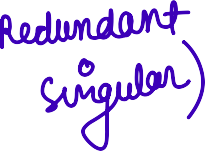 Redundant
singular)